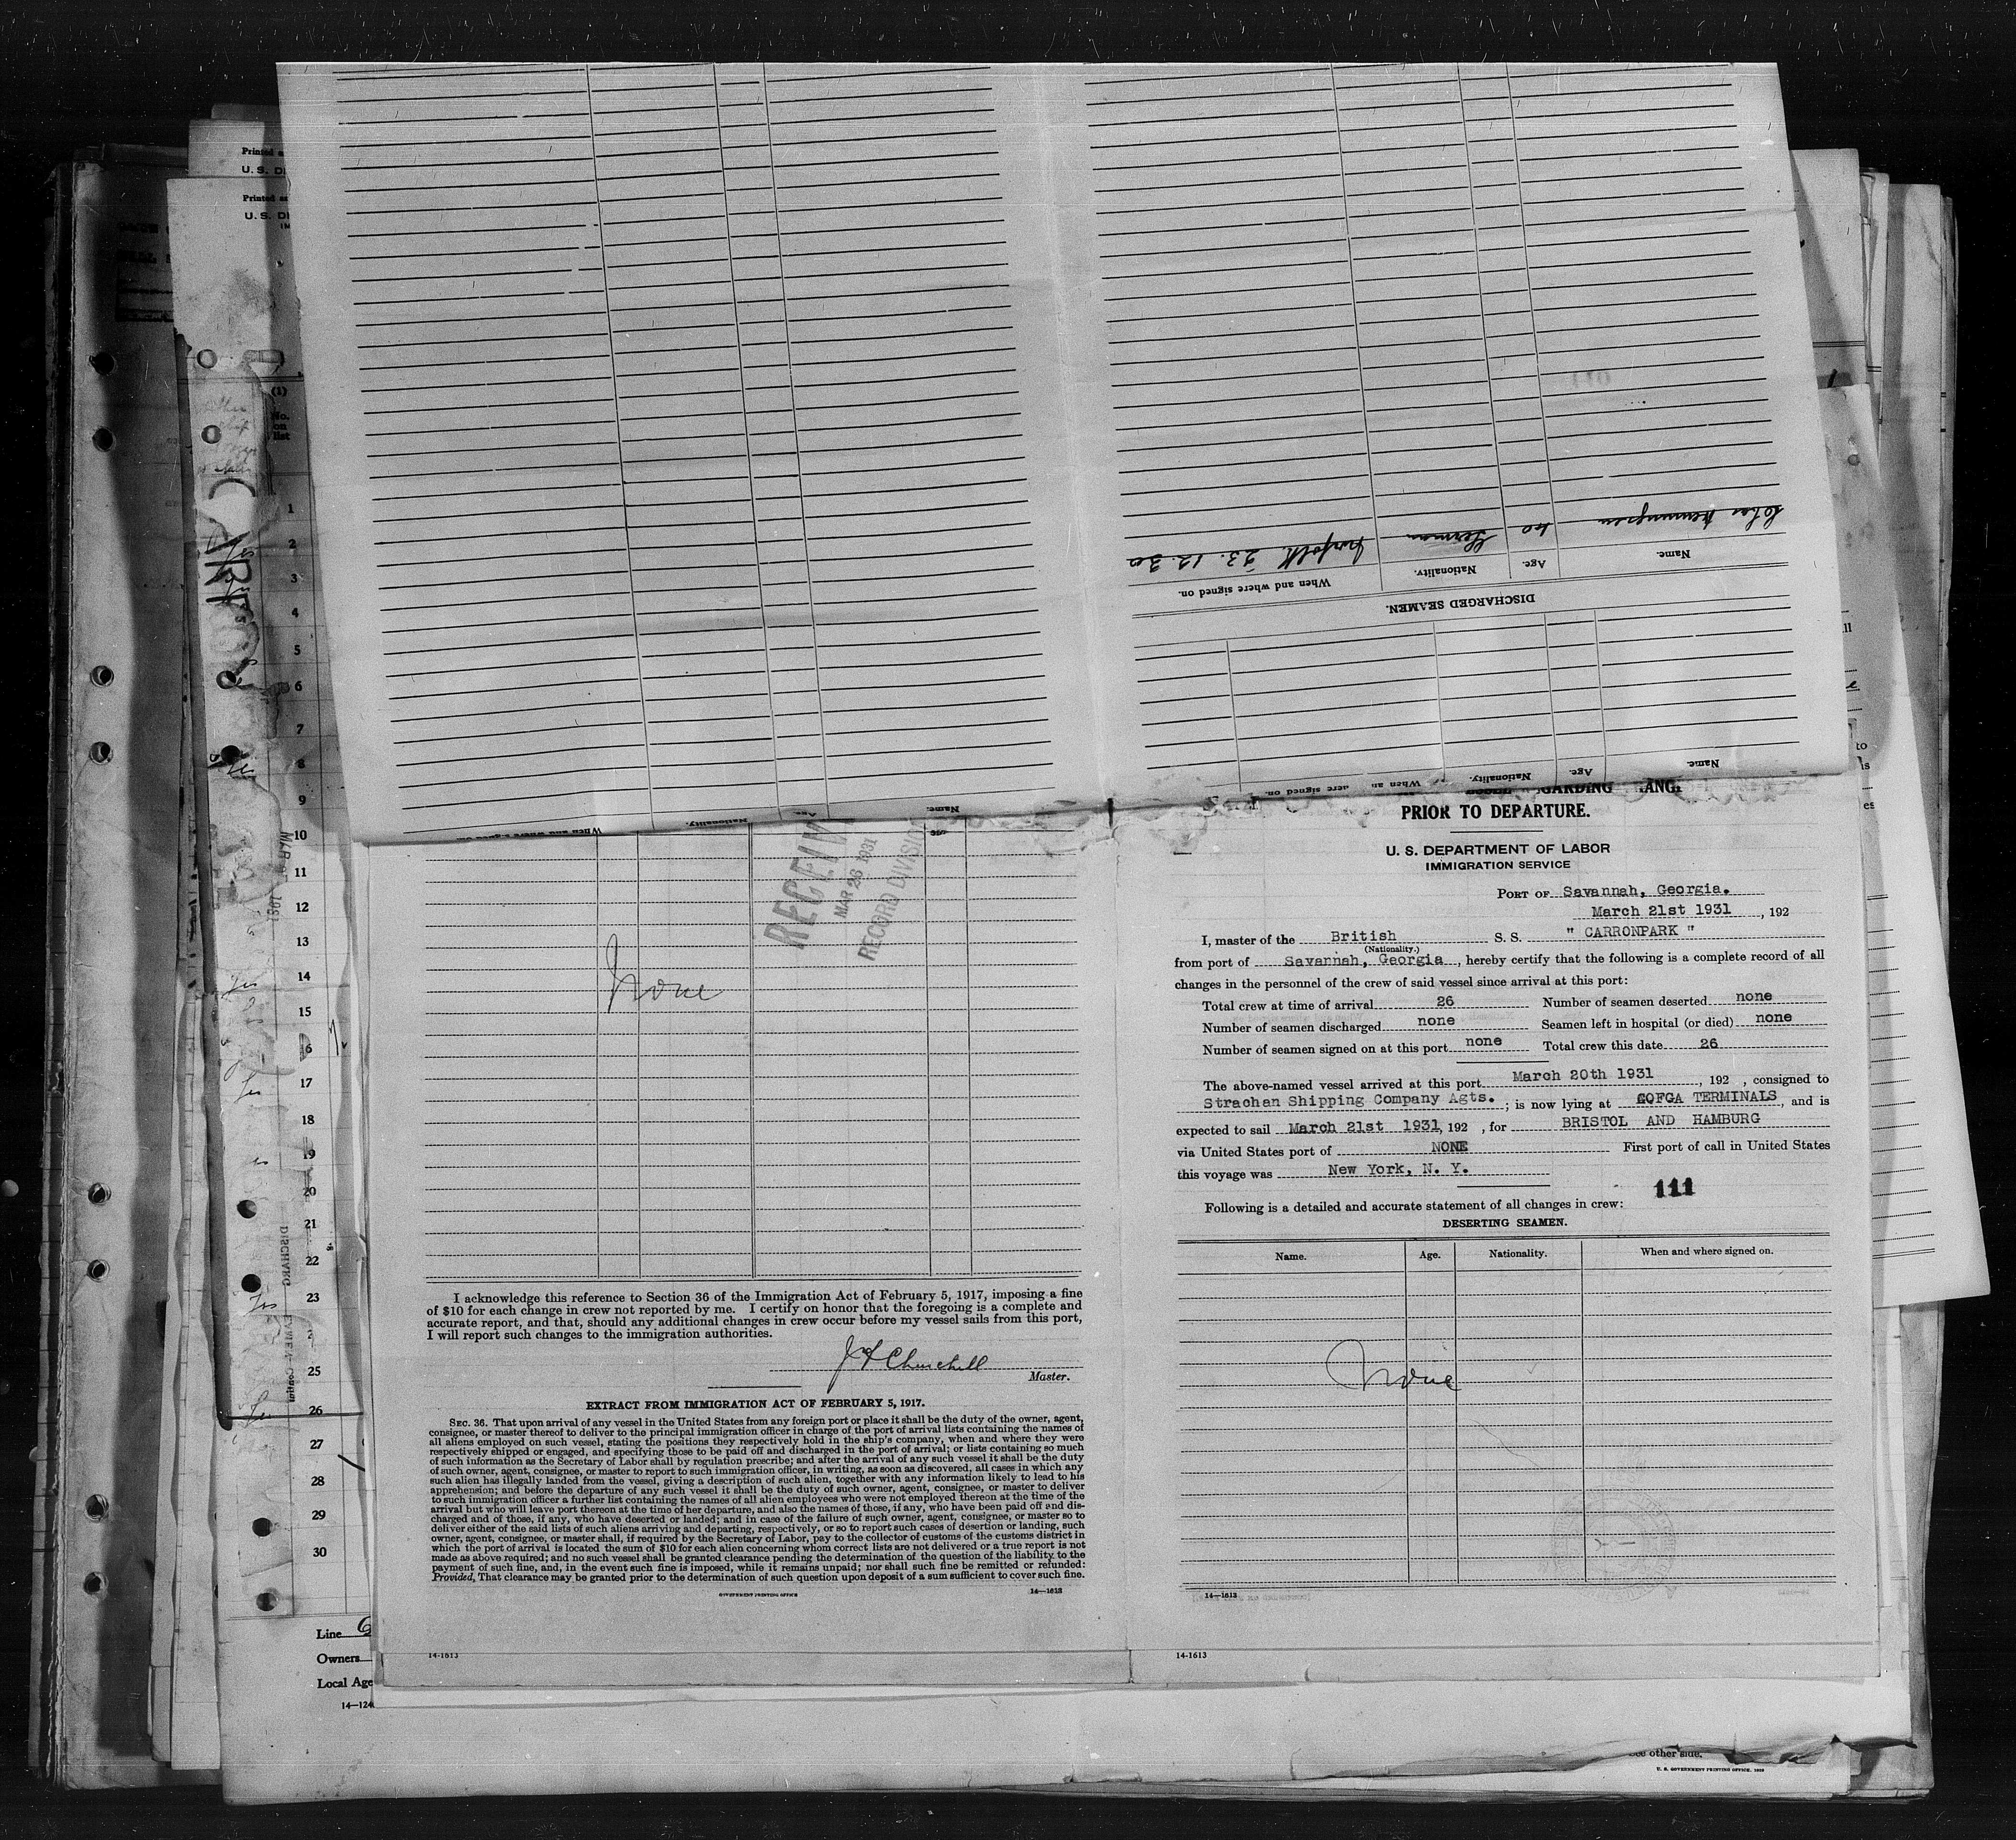 Printed
U. S.
Printed as
U. S. D
(1)
No.
on
list
1
2
3
4
5
6
7
8
9
10
11
12
13
14
15
16
17
18
19
20
21
22
23
25
26
27
28
29
30
Line
Owners
Local Age
When and where signed on.
Nationality.
Age.
Name.
Name.
Age.
Nationality.
DISCHARGED SEAMEN.
Name.
Age.
Nationality.
When and where signed on.
40
German
Norfolk 23.12.30
RECEIV
MAR 26 1931
RECORD DIVISION
None
I acknowledge this reference to Section 36 of the Immigration Act of February 5, 1917, imposing a fine
of $10 for each change in crew not reported by me. I certify on honor that the foregoing is a complete and
accurate report, and that, should any additional changes in crew occur before my vessel sails from this port,
I will report such changes to the immigration authorities.
J Churchill
Master.
EXTRACT FROM IMMIGRATION ACT OF FEBRUARY 5, 1917.
SEC. 36. That upon arrival of any vessel in the United States from any foreign port or place it shall be the duty of the owner, agent,
consignee, or master thereof to deliver to the principal immigration officer in charge of the port of arrival lists containing the names of
all aliens employed on such vessel, stating the positions they respectively hold in the ship's company, when and where they were
respectively shipped or engaged, and specifying those to be paid off and discharged in the port of arrival; or lists containing so much
of such information as the Secretary of Labor shall by regulation prescribe; and after the arrival of any such vessel it shall be the duty
of such owner, agent, consignee, or master to report to such immigration officer, in writing, as soon as discovered, all cases in which any
such alien has illegally landed from the vessel, giving a description of such alien, together with any information likely to lead to his
apprehension; and before the departure of any such vessel it shall be the duty of such owner, agent, consignee, or master to deliver
to such immigration officer a further list containing the names of all alien employees who were not employed thereon at the time of the
arrival but who will leave port thereon at the time of her departure, and also the names of those, if any, who have been paid off and dis-
charged and of those, if any, who have deserted or landed; and in case of the failure of such owner, agent, consignee, or master so to
deliver either of the said lists of such aliens arriving and departing, respectively, or so to report such cases of desertion or landing, such
owner, agent, consignee, or master shall, if required by the Secretary of Labor, pay to the collector of customs of the customs district in
which the port of arrival is located the sum of $10 for each alien concerning whom correct lists are not delivered or a true report is not
made as above required; and no such vessel shall be granted clearance pending the determination of the question of the liability to the
payment of such fine, and, in the event such fine is imposed, while it remains unpaid; nor shall such fine be remitted or refunded:
Provided, That clearance may be granted prior to the determination of such question upon deposit of a sum sufficient to cover such fine.
GOVERNMENT PRINTING OFFICE
14—1613
14-1613
GARDING
PRIOR TO DEPARTURE.
U. S. DEPARTMENT OF LABOR
IMMIGRATION SERVICE
PORT OF Savannah, Georgia.
March 21st 1931, 192
I, master of the British S. S. " CARRONPARK "
(Nationality.)
from port of Savannah, Georgia, hereby certify that the following is a complete record of all
changes in the personnel of the crew of said vessel since arrival at this port:
Total crew at time of arrival 26 Number of seamen deserted none
Number of seamen discharged none Seamen left in hospital (or died) none
Number of seamen signed on at this port none Total crew this date 26
The above-named vessel arrived at this port March 20th 1931, 192 , consigned to
Strachan Shipping Company Agts. ; is now lying at COFGA TERMINALS, and is
expected to sail March 21st 1931, 192 , for BRISTOL AND HAMBURG
via United States port of NONE First port of call in United States
this voyage was New York, N. Y.
111
Following is a detailed and accurate statement of all changes in crew:
DESERTING SEAMEN.
Name. Age. Nationality. When and where signed on.
None
14—1613
14-1613
See other side.
U. S. GOVERNMENT PRINTING OFFICE